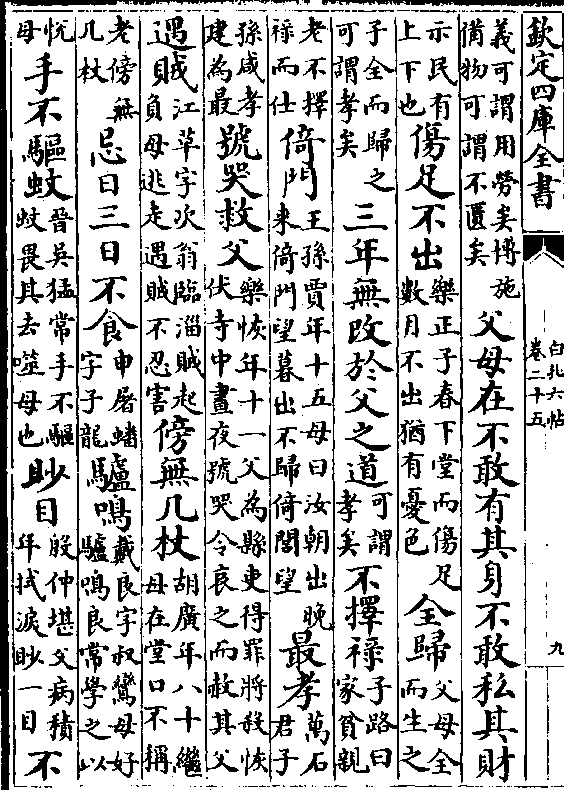 欽定四庫全書
白孔六帖
卷二十五
九
義可謂用勞矣博施備物可謂不匱矣父母在不敢有其身不敢私其財
示民有上下也傷足不出樂正子春下堂而傷足數月不出猶有憂色全歸父母全而生之
子全而歸之可謂孝矣三年無改於父之道可謂孝矣不擇祿子路曰家貧親
老不擇祿而仕倚門王孫賈年十五母曰汝朝出晚來倚門望暮出不歸倚閭望最孝萬石君子
孫咸孝建為最號哭救父樂恢年十一父為縣吏得罪將殺恢伏寺中晝夜號哭令哀之而赦其父
遇賊江草字次翁臨淄賊起負母逃走遇賊不忍害傍無几杖胡廣年八十繼母在堂口不稱
老傍無几杖忌日三日不食申屠蟠字子龍驢鳴戴良字叔鸞母好驢鳴良常學之以
恱母手不驅蚊晉吳猛常手不驅蚊畏其去噬母也眇目殷仲堪父病積年拭淚眇一目不